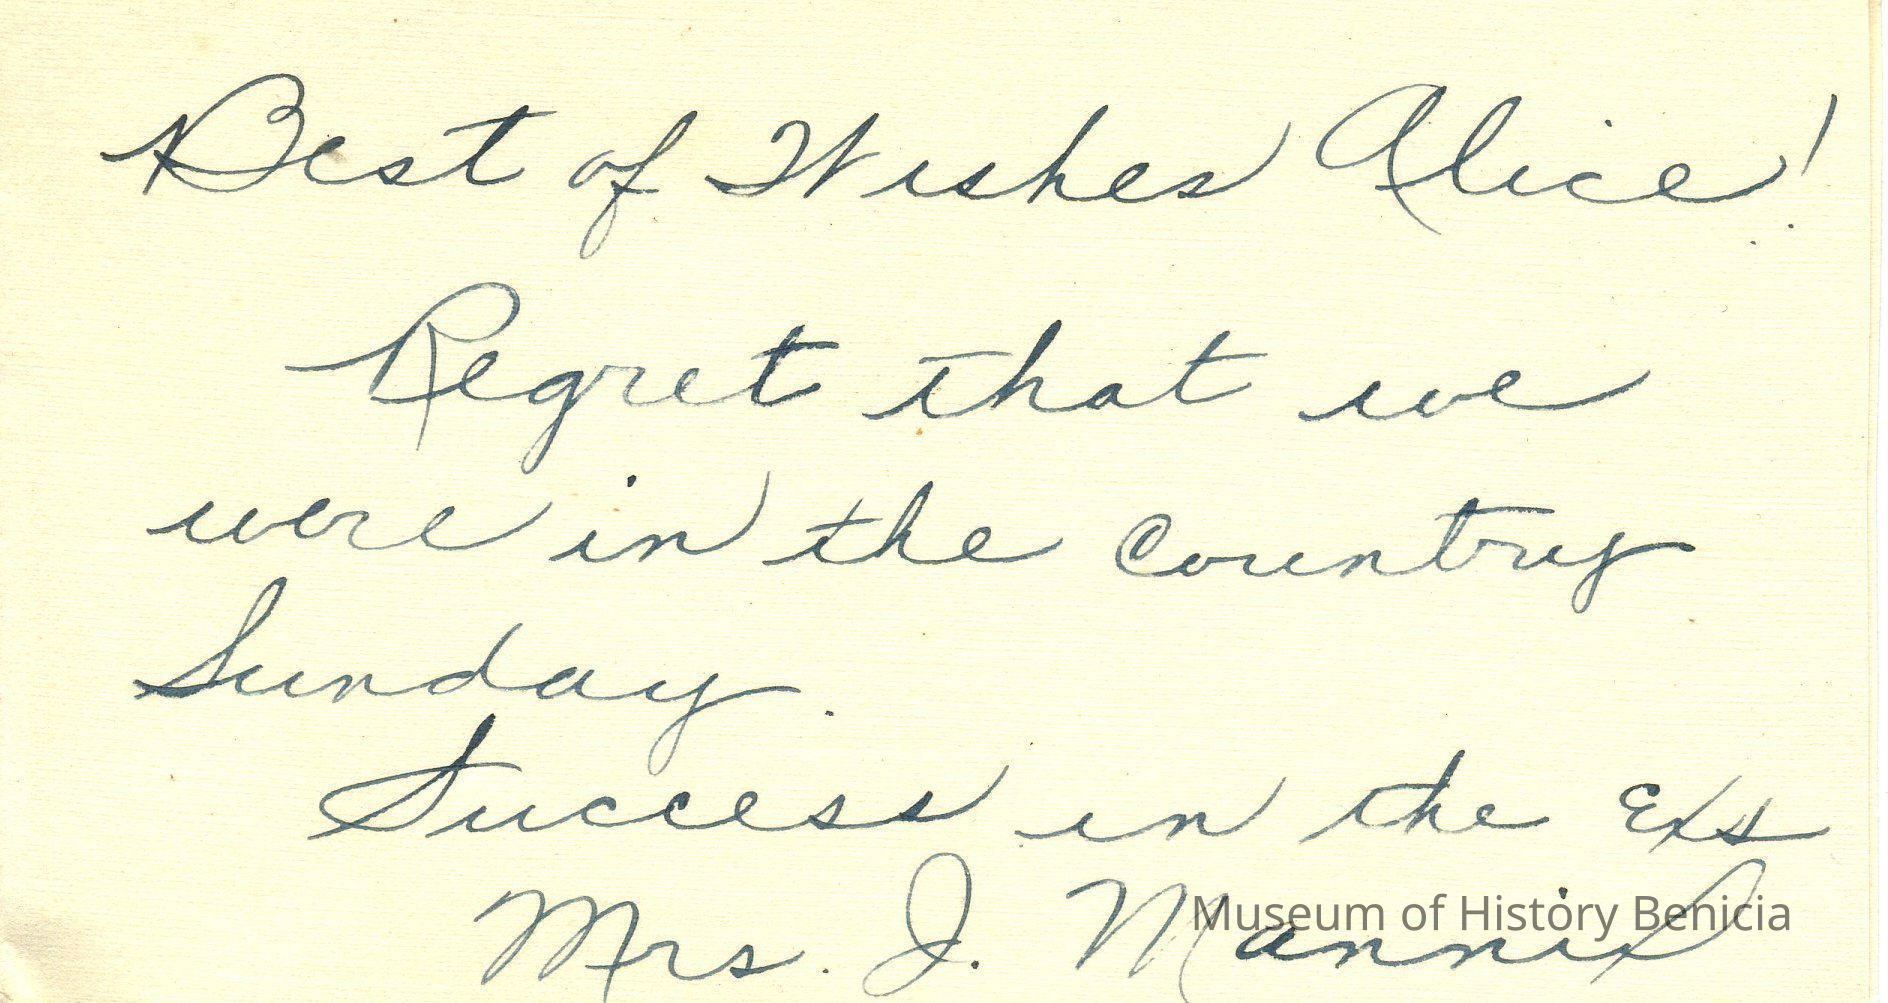 Best of Wishes Alice!
Regret that we
were in the Country
Sunday.
Success in the Exs
Mrs. J. Mannix
Museum of History Benicia